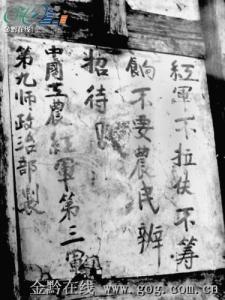 金黔在线
紅軍不拉伕不筹
餉不要農民辦
招待！
中國工農紅軍第三軍
第九师政治部製
金黔在线 www.gog.com.cn